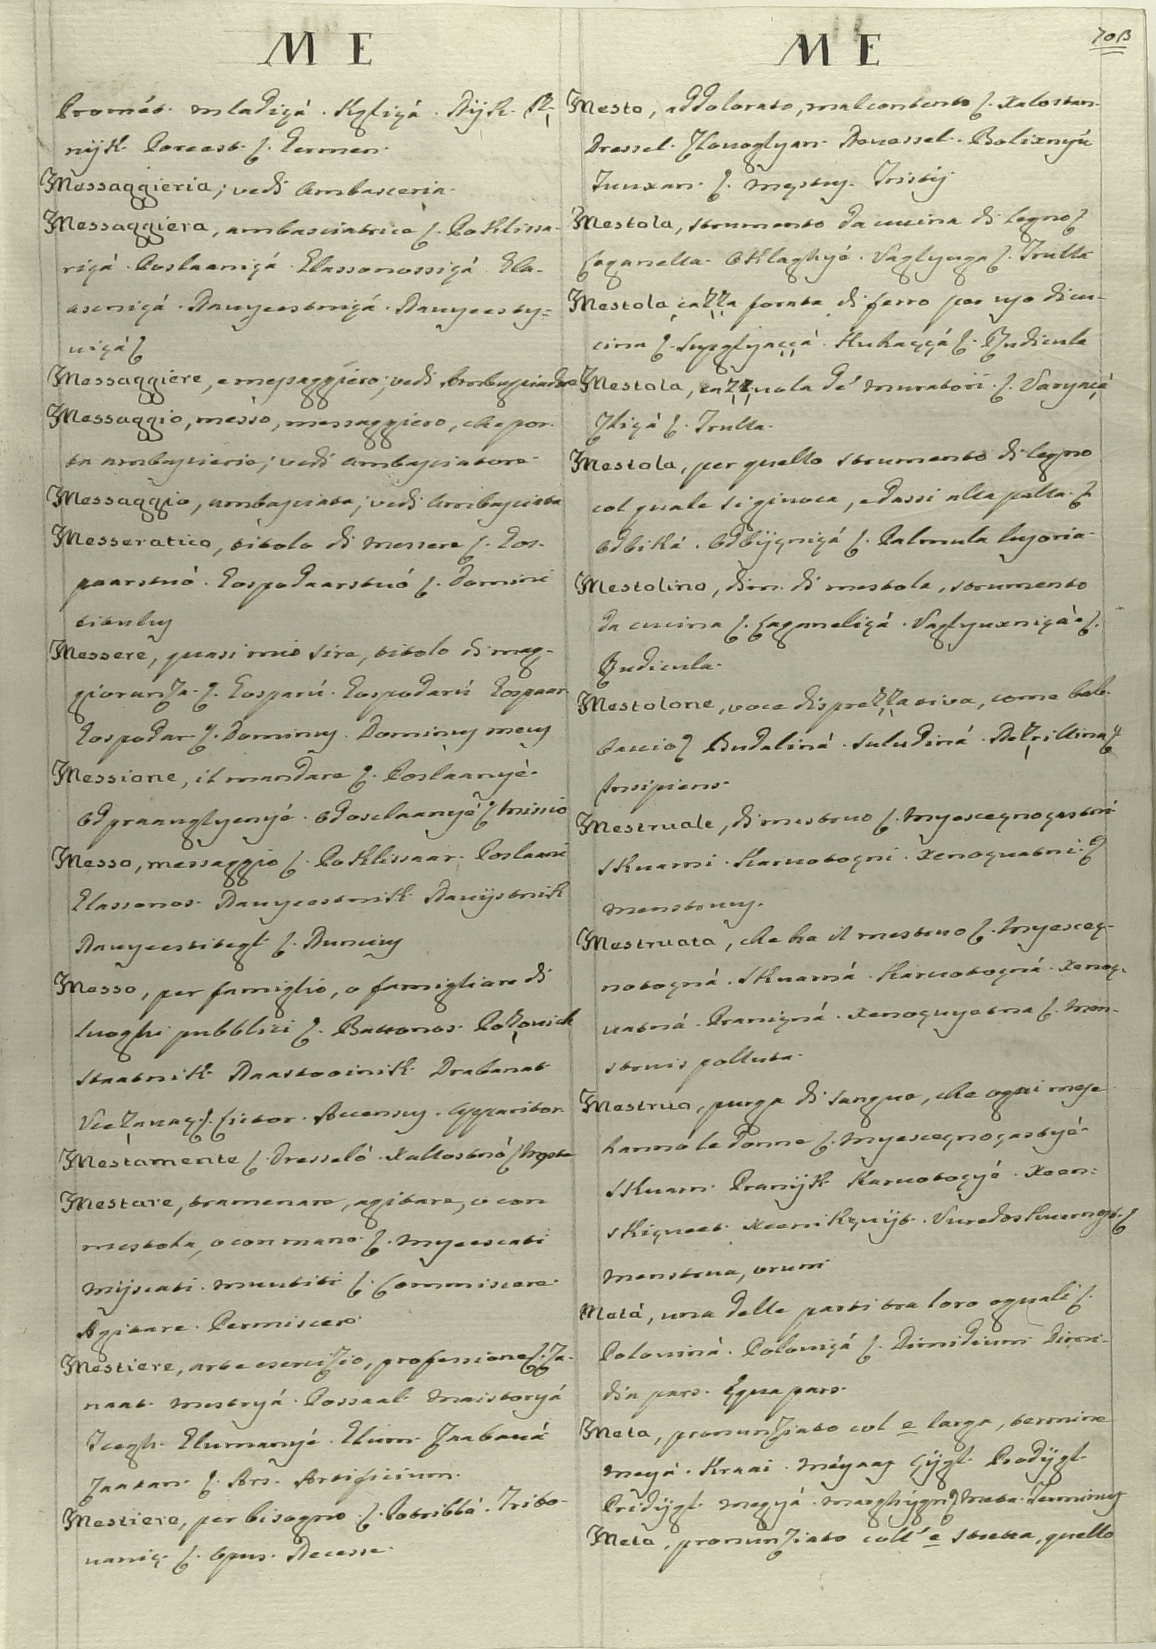 ME
Promét. mladiçá. Kgliçá. Dijk. Pl-
nijk Porcast. ʃ. Germen.
Messaggieria; vedi Ambasceria.
Messaggiera, ambasciatrice ʃ. Poklissa-
riçá. Poslaaniçá. Glassonossiçá. Gla-
aseniçá. Navyeestniçá. Navyeesty-
uiçá ʃ
Messaggiere, e messaggiero; vedi Ambasciadore
Messaggio, messo, messaggiero, che por-
ta ambascieria; vedi ambasciatore.
Messaggio, ambasciata; vedi Ambasciata
Messeratico, titolo di messere ʃ. Gos-
paarstuó. Gospodaarstuó ʃ. Domini
titulus
Messere, quasi mio sire, titolo di mag-
gioranza. ʃ. Gosparú. Gospodarú Gospaar
Gospodar ʃ. Dominus. Dominus meus
Messione, il mandare ʃ. Poslaanyé.
Odpraauglyenyé. Odosclaanyé ʃ Missio
Messo, messaggio ʃ. Poklissaar. Poslaani
Glassonos. Navyeestnik Navijstnik
Navyeestitegl ʃ. Nuncius
Messo, per famiglio, o famigliare di
luoghi pubblici ʃ. Battonos. Pozouich
Staatnik Naastooinik Drabanat
Vcezauaç ʃ. Lictor. Accensus. Apparitor
Mestamente ʃ. Dresseló. Xallostnó ʃ Mæste
Mestare, tramenare, agitare, o con
mestola, o con mano. ʃ. myeescati
mijscati. muutiti ʃ. Commiscere.
Agitare. Permiscere.
Mestiere, arte esercizio, professione ʃ. Za-
naat. mestryá. Possaal. maistoryá
Icegh. Glumanyé. Glum. Zaabauá
Zaatan. ʃ. Ars. Artificium.
Mestiere, per bisogno. ʃ. Potribbá. Tribo-
uaniç. ʃ. Opus. Necesse.
ME
70B
Mesto, addolorato, malcontento ʃ. Xalostan.
Dressel. Zlouoglyan. Neuessel. Bolixnyú
Tuuxan. ʃ. mæstus. Tristis
Mestola, strumento da cucina di legno ʃ
Caganella. Oklaghyé. Vaglyuga ʃ. Trulla
Mestola cazza forata di ferro per uso di cu-
cina ʃ. Supglyaççá. Kuhaççá ʃ. Rudicula
Mestola, cazzuola dé muratori. ʃ. Varyaçá
Zliçá ʃ. Trulla.
Mestola, per quello strumento di legno
col quale si giuoca, e dassi alla palla. ʃ.
Odbiká. Odbijçniçá ʃ. Palmula lusoria.
Mestolino, dim. di mestola, strumento
da cucina ʃ. Caganeliçá. Vaglyuxniçá. ʃ.
Rudicula.
Mestolone, voce disprezzativa, come bab-
baccio ʃ Budaliná. Suludiná. Nezrillina ʃ
Insipiens.
Mestruale, di mestruo ʃ. Myesceçnoçastni
Skuarni. Karuotoçni. Xenoçuatni. ʃ
menstruus.
Mestruata, che ha il mestruo ʃ. Myesceç-
notoçná. Skuarná. Karuotoçná. Xenoç-
uatná. Praniçná. Xenoçuyetna ʃ. Men-
struis polluta.
Mestruo, purga di sangue, che ogni mese
hanno le donne ʃ. Myesceçnoçastyé.
Skuarn. Pranijk Karuotoçyé. Xeen-
skiçueet. Xeenikçuijt. Vuredoskuurnost. ʃ
menstrua, orum
Metá, una delle parti tra loro eguali ʃ.
Polouiná. Polouiçá ʃ. Dimidium. Dimi-
dia pars. Equa pars.
Meta, pronunziato col e larga, termine
meyá. Kraai. méyaaç Çijgl. Predijgl.
Pridijgl. megyá. maeghyçni ʃ Meta. Terminus
Meta, pronunziato coll' e stretta, quello